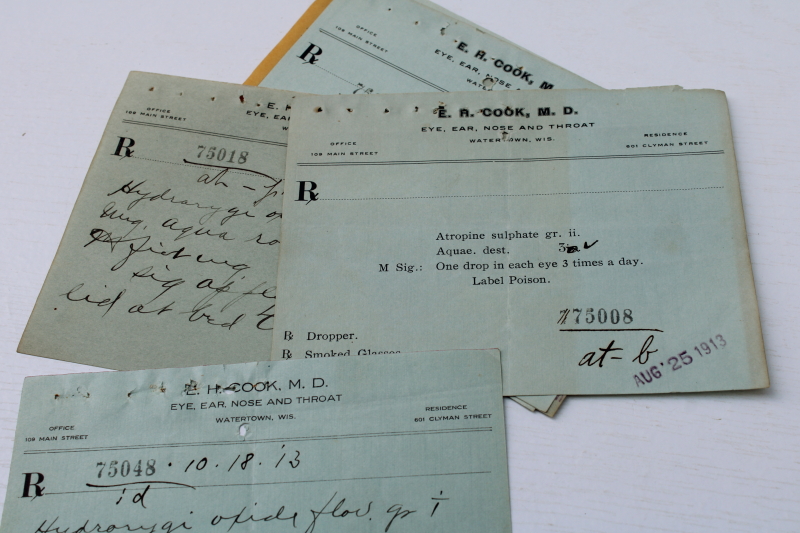 OFFICE
109 MAIN STREET
E. H. COOK, M
EYE, EAR, NOSE
WATE
℞
OFFICE
109 MAIN STREET
E. H
EYE, EA
W
℞ 75018
Hydrargyi
ung. aqua ro
sig
lid at bed
E. H. COOK, M. D.
EYE, EAR, NOSE AND THROAT
WATERTOWN, WIS.
OFFICE
109 MAIN STREET
RESIDENCE
601 CLYMAN STREET
℞
Atropine sulphate gr. ii.
Aquae. dest.
M Sig.: One drop in each eye 3 times a day.
Label Poison.
75008
at-b
AUG 25 1913
℞ Dropper.
℞ Smoked Glasses
E. H. COOK, M. D.
EYE, EAR, NOSE AND THROAT
WATERTOWN, WIS.
OFFICE
109 MAIN STREET
RESIDENCE
601 CLYMAN STREET
℞ 75048 · 10.18.13
id
Hydrargyi oxide flav. gr i